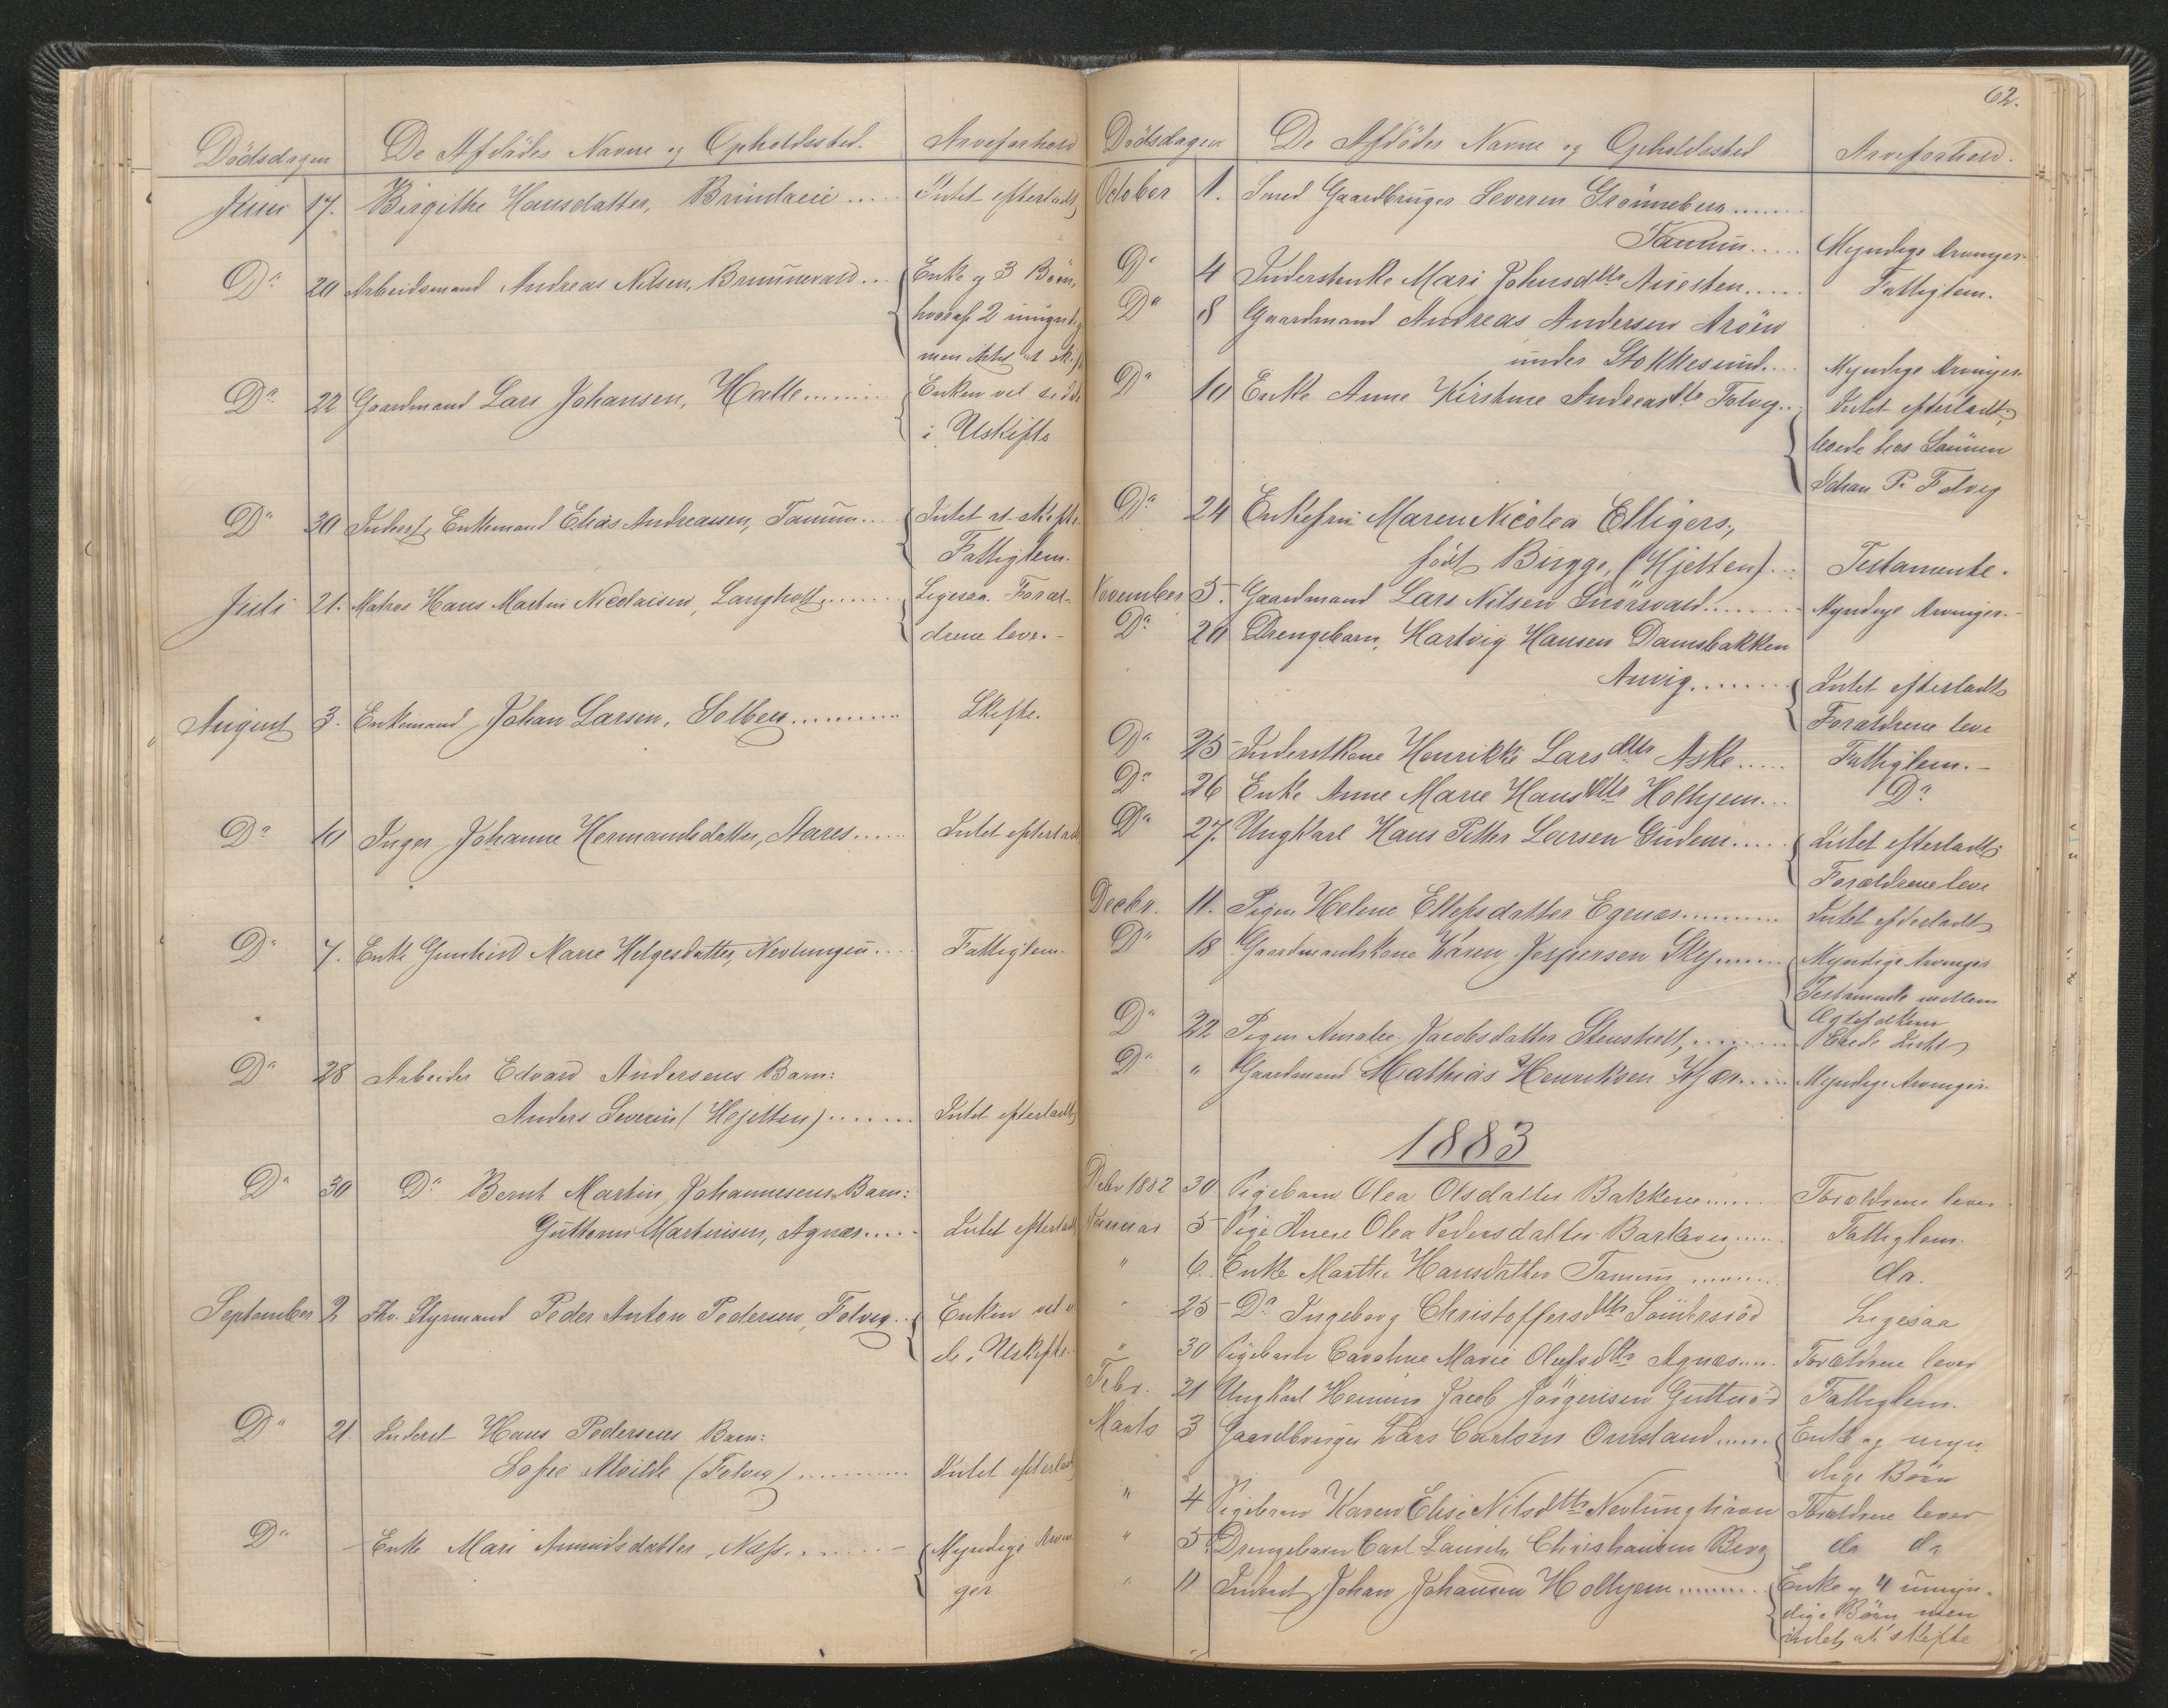 Dödsdagen De Afdödes Navne og Opholdssted. Arveforhold
Juni 17. Birgithe Hansdatter, Brunlaeie ..... Intet efterladt
Do 20 Arbeidsmand Andreas Nilsen, Brunnevald... Enke og 3 Börn,
hvoraf 2 umynd
men Intet at sk
Do 22 Gaardmand Lars Johansen, Halle....... Enken vil sidde
i Uskifte
Do 30 Inderst, Enkemand Elias Andreassen, Tanum... Intet at skifte.
Fattiglem.
Juli 21. Matros Hans Martin Nicolaisen, Langholt....... Ligesaa. Foræl-
drene leve. -
August 3. Enkemand Johan Larsen, Solberg........... Skifte.
Do 10 Inger Johanne Hermandsdatter, Aares...... Intet efterladt
Do 7. Enke Gunhild Marie Helgesdatter, Nevlungen.... Fattiglem.
Do 28 Arbeider Edvard Andersens Barn:
Anders Severin (Hejelten)........ Intet efterladt
Do 30 Do Bernt Martin Johannesens Barn:
Guttorm Martinisen, Agnæs..... Intet efterladt
September 2 Fhv. Styrmand Peder Anton Pedersen, Folvig.. Enken vil
de i Uskifte.
Do 21. Inderst Hans Pedersens Barn:
Sofie Alvilde (Folvig).......... Intet efterladt
Do Enke Mari Amundsdatter, Næss......... Myndige Arvin
ger
62.
Dödsdagen De Afdödes Navne og Opholdssted Arveforhold.
October 1. Smed Gaardbruger Severin Grönneberg.......
Tanum..... Myndige Arvinger.
Do 4 Inderstenke Mari Johnsdttr Auesten..... Fattiglem.
Do 8 Gaardmand Andreas Andersen Aröen
under Stokkesund.... Myndige Arvinger.
Do 10 Enke Anne Kirstine Andreasdttr Folvig.. Intet efterladt,
levede hos Sönnen
Johan P. Folvig
Do 24 Enkefru Maren Nicolea Elligers,
födt Bugge, (Hjelten)... Testamente.
November 3. Gaardmand Lars Nilsen Snörsvald........ Myndige Arvinger.
Do 20 Drengebarn, Hartvig Hansen Damsbakken
Anvig......... Intet efterladt
Forældrene leve
Do 25 Inderstkone Henrikke Larsdttr Aske..... Fattiglem. -
Do 26 Enke Anne Marie Hansdttr Holtyem... Do
Do 27. Ungkarl Hans Petter Larsen Gudem..... Intet efterladt;
Forældrene leve
Decbr. 11. Pigen Helene Ellefsdatter Egenæs.......... Intet efterladt
Do 18 Gaardmandskone Karen Jespersen Sky....... Myndige Arvinger
Testamente mellem
Ægtefolkene
Do 22 Pigen Jacobsdatter Stensholt,......... Eiede Intet
Do " Gaardmand Mathias Henriksen Kjær..... Myndige Arvinger.
1883
Debr 1882 30 Pigebarn Olea Olsdatter Bakkene...... Forældrene lever
Januar 5 Pige Anne Olea Pedersdatter Barkevig...... Fattiglem.
" 6. Enke Marthe Hansdatter Tanum ......... do.
" 25 Do Ingeborg Christoffersdttr Söndersröd Ligesaa
" 30 Pigebarn Caroline Marie Olufsdttr Agnæs.... Forældrene lever
Febr. 21 Ungkarl Heming Jacob Jörgensen Guttusröd Fattiglem.
Marts 3 Gaardbruger Lars Carlsen Omsland...... Enke og myn
dige Börn
" 4 Pigebarn Karen Elise Nilsdttr Nevlunghavn Forældrene lever
" 5 Drengebarn Carl Lauritz Christiansen Berg do do
" 11 Inderst Johan Johansen Holtyem........ Enke og 4 umyn-
dige Börn, men
intet at skifte